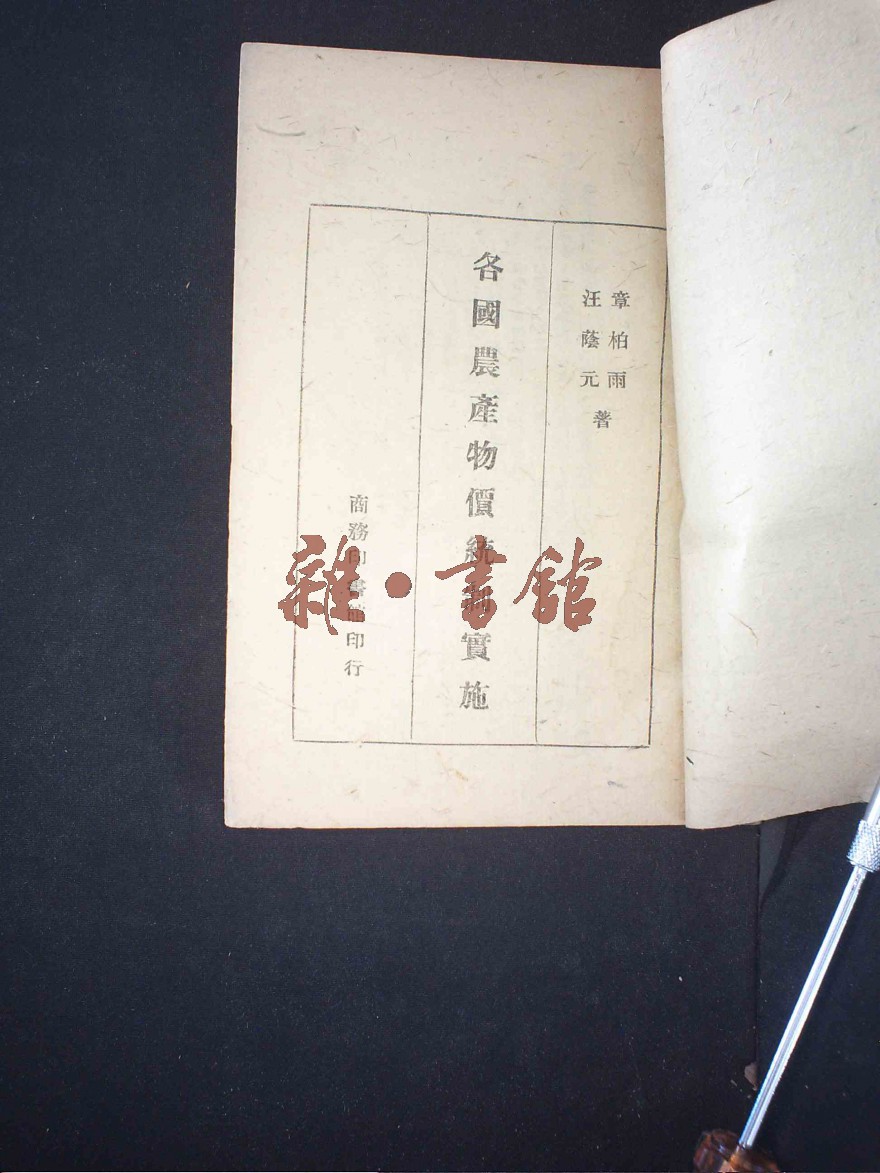 章柏雨
汪蔭元
著
各國農產物價統制實施
商務印書館印行
雜·書館